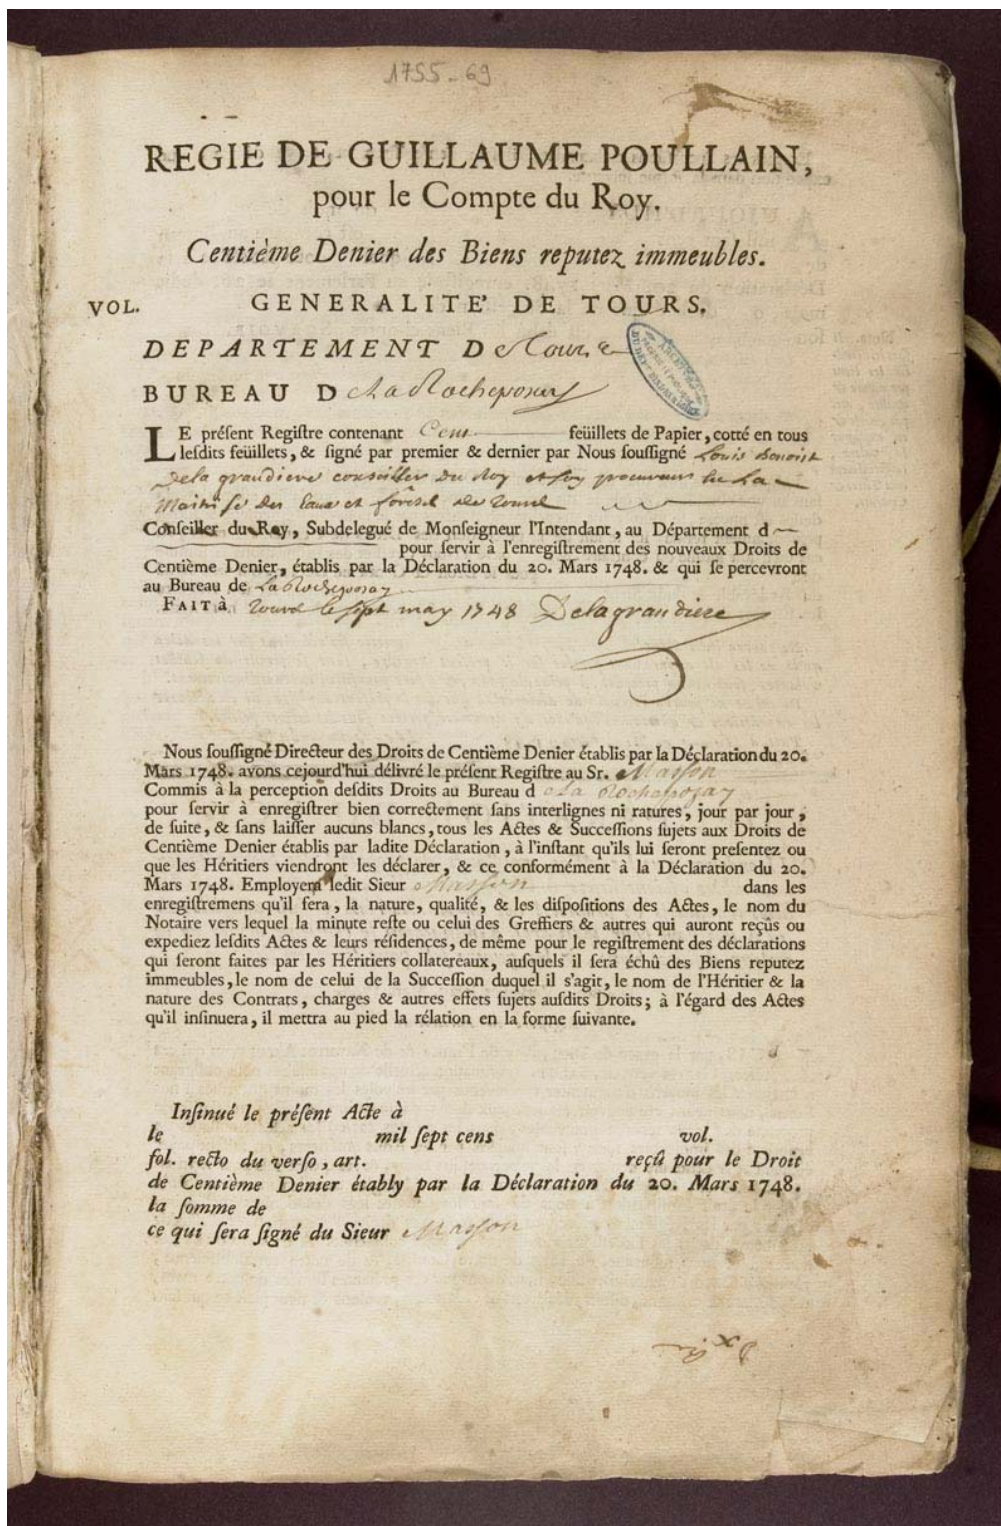 1755-69
REGIE DE GUILLAUME POULLAIN,
pour le Compte du Roy.
Centième Denier des Biens reputez immeubles.
VOL. GENERALITE' DE TOURS.
DEPARTEMENT De Tours
BUREAU De La Rocheposay
LE préſent Regiſtre contenant Cent feüillets de Papier, cotté en tous
leſdits feüillets, & ſigné par premier & dernier par Nous ſouſſigné Louis Benoist
Delagrandiere conseiller du Roy et son procureur en La
Maitrise des Eaux et forest de Tours
Conſeiller du Roy, Subdelegué de Monſeigneur l'Intendant, au Département d
pour ſervir à l'enregiſtrement des nouveaux Droits de
Centième Denier, établis par la Déclaration du 20. Mars 1748. & qui ſe percevront
au Bureau de La Rocheposay
FAIT à Tours le sept may 1748 Delagrandiere
Nous ſouſſigné Directeur des Droits de Centième Denier établis par la Déclaration du 20.
Mars 1748. avons cejourd'hui délivré le préſent Regiſtre au Sr. Masson
Commis à la perception deſdits Droits au Bureau d e La Rocheposay
pour ſervir à enregiſtrer bien correctement ſans interlignes ni ratures, jour par jour,
de ſuite, & ſans laiſſer aucuns blancs, tous les Actes & Succeſſions ſujets aux Droits de
Centième Denier établis par ladite Déclaration, à l'inſtant qu'ils lui ſeront preſentez ou
que les Héritiers viendront les déclarer, & ce conformément à la Déclaration du 20.
Mars 1748. Employera ledit Sieur Masson dans les
enregiſtremens qu'il fera, la nature, qualité, & les diſpoſitions des Actes, le nom du
Notaire vers lequel la minute reſte ou celui des Greffiers & autres qui auront reçûs ou
expediez leſdits Actes & leurs réſidences, de même pour le regiſtrement des déclarations
qui ſeront faites par les Héritiers collatereaux, auſquels il ſera échû des Biens reputez
immeubles, le nom de celui de la Succeſſion duquel il s'agit, le nom de l'Héritier & la
nature des Contrats, charges & autres effets ſujets auſdits Droits; à l'égard des Actes
qu'il inſinuera, il mettra au pied la rélation en la forme ſuivante.
Inſinué le préſent Acte à
le mil ſept cens vol.
fol. recto du verſo, art. reçû pour le Droit
de Centième Denier étably par la Déclaration du 20. Mars 1748.
la ſomme de
ce qui ſera ſigné du Sieur Masson